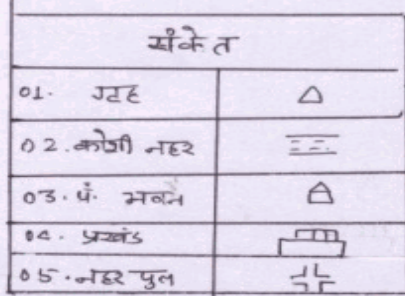 संकेत
01. गृह
02. कोशी नहर
03. पं. भवन
04. प्रखंड
05. नहर पुल